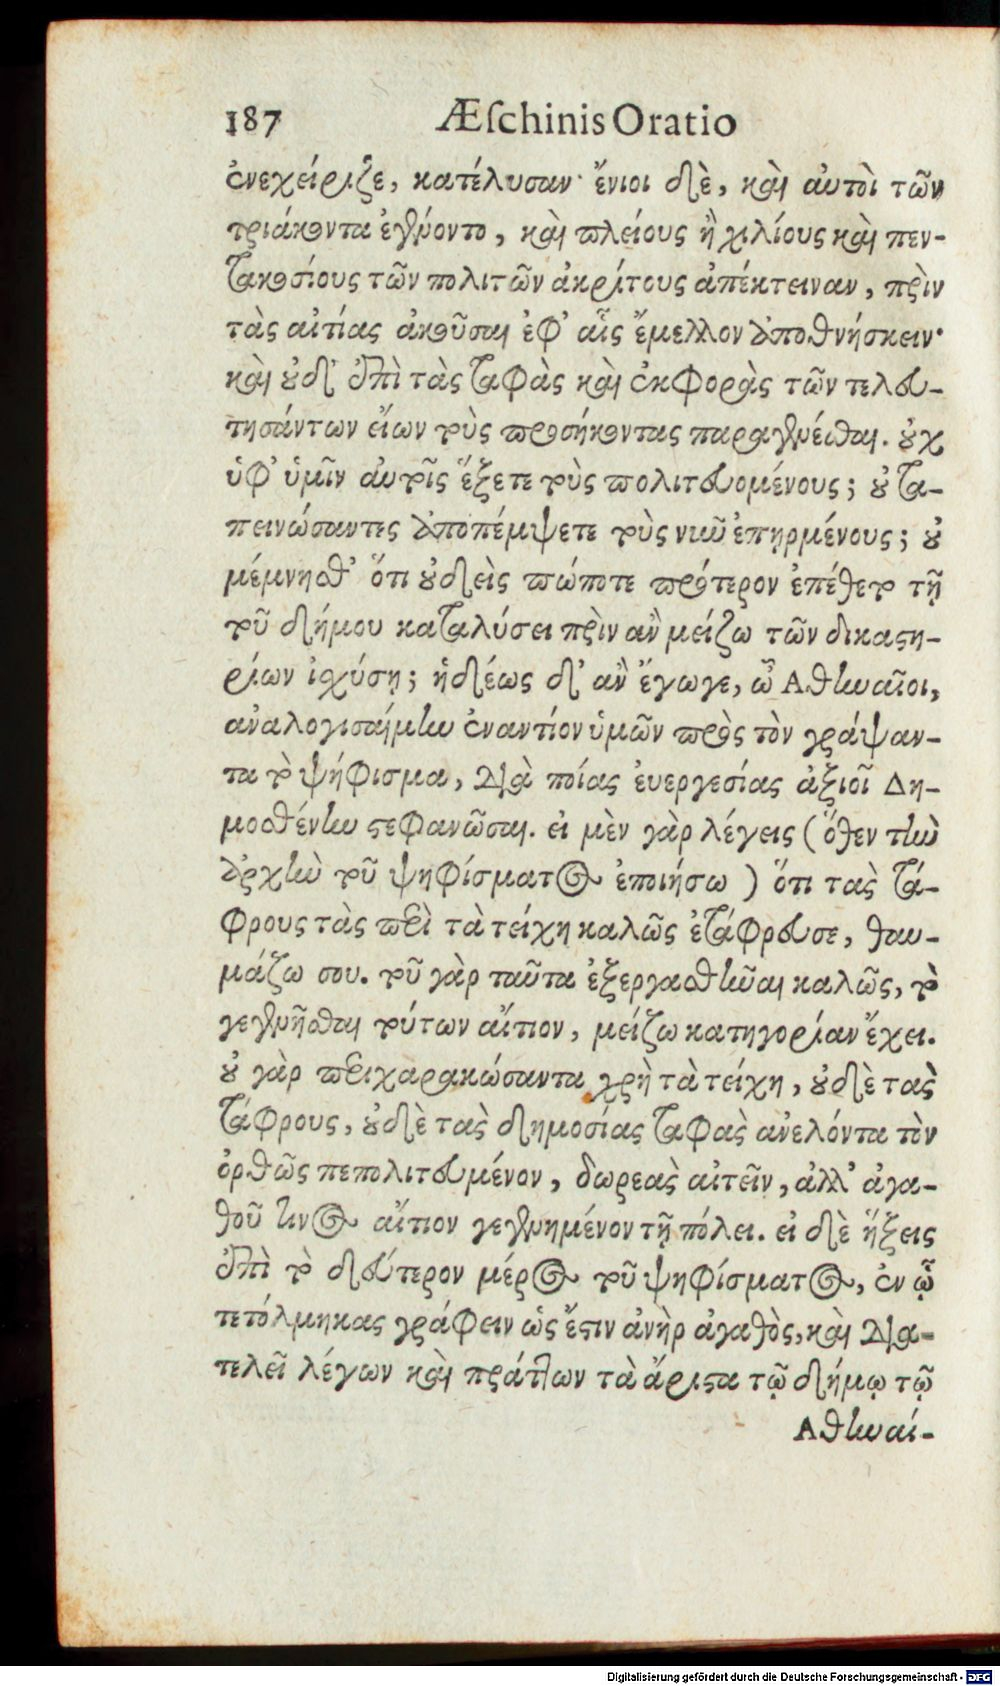 187 Æſchinis Oratio
ἐνεχείριζε, κατέλυσαν· ἔνιοι δὲ, καὶ αὐτοὶ τῶν
τριάκοντα ἐγένοντο, καὶ πλείους ἢ χιλίους καὶ πεν-
τακοσίους τῶν πολιτῶν ἀκρίτους ἀπέκτειναν, πρὶν
τὰς αἰτίας ἀκοῦσαι ἐφ᾽ αἷς ἔμελλον ἀποθνήσκειν·
καὶ οὐδ᾽ ἐπὶ τὰς ταφὰς καὶ ἐκφορὰς τῶν τελευ-
τησάντων εἴων τοὺς προσήκοντας παραγενέσθαι. οὐχ
ὑφ᾽ ὑμῖν αὐτοῖς ἕξετε τοὺς πολιτευομένους; οὐ τα-
πεινώσαντες ἀποπέμψετε τοὺς νιῶ ἐπηρμένους; οὐ
μέμνησθ᾽ ὅτι οὐδεὶς πώποτε πρότερον ἐπέθετο τῇ
τοῦ δήμου καταλύσει πρὶν ἂν μείζω τῶν δικαστη-
ρίων ἰσχύσῃ; ἡδέως δ᾽ ἂν ἔγωγε, ὦ Ἀθηναῖοι,
ἀναλογισαίμην ἐναντίον ὑμῶν πρὸς τὸν γράψαν-
τα τὸ ψήφισμα, διὰ ποίας εὐεργεσίας ἀξιοῖ Δη-
μοσθένην στεφανῶσαι. εἰ μὲν γὰρ λέγεις (ὅθεν τὴν
ἀρχὴν τοῦ ψηφίσματος ἐποιήσω) ὅτι τὰς τά-
φρους τὰς περὶ τὰ τείχη καλῶς ἐτάφρευσε, θαυ-
μάζω σου. τοῦ γὰρ ταῦτα ἐξεργασθῆναι καλῶς, τὸ
γεγενῆσθαι τούτων αἴτιον, μείζω κατηγορίαν ἔχει.
οὐ γὰρ περιχαρακώσαντα χρὴ τὰ τείχη, οὐδὲ τὰς
τάφρους, οὐδὲ τὰς δημοσίας ταφὰς ἀνελόντα τὸν
ὀρθῶς πεπολιτευμένον, δωρεὰς αἰτεῖν, ἀλλ᾽ ἀγα-
θοῦ τινος αἴτιον γεγενημένον τῇ πόλει. εἰ δὲ ἥξεις
ἐπὶ τὸ δεύτερον μέρος τοῦ ψηφίσματος, ἐν ᾧ
τετόλμηκας γράφειν ὡς ἔστιν ἀνὴρ ἀγαθὸς, καὶ δια-
τελεῖ λέγων καὶ πράττων τὰ ἄριστα τῷ δήμῳ τῷ
Ἀθηναί-
Digitalisierung gefördert durch die Deutsche Forschungsgemeinschaft - DFG